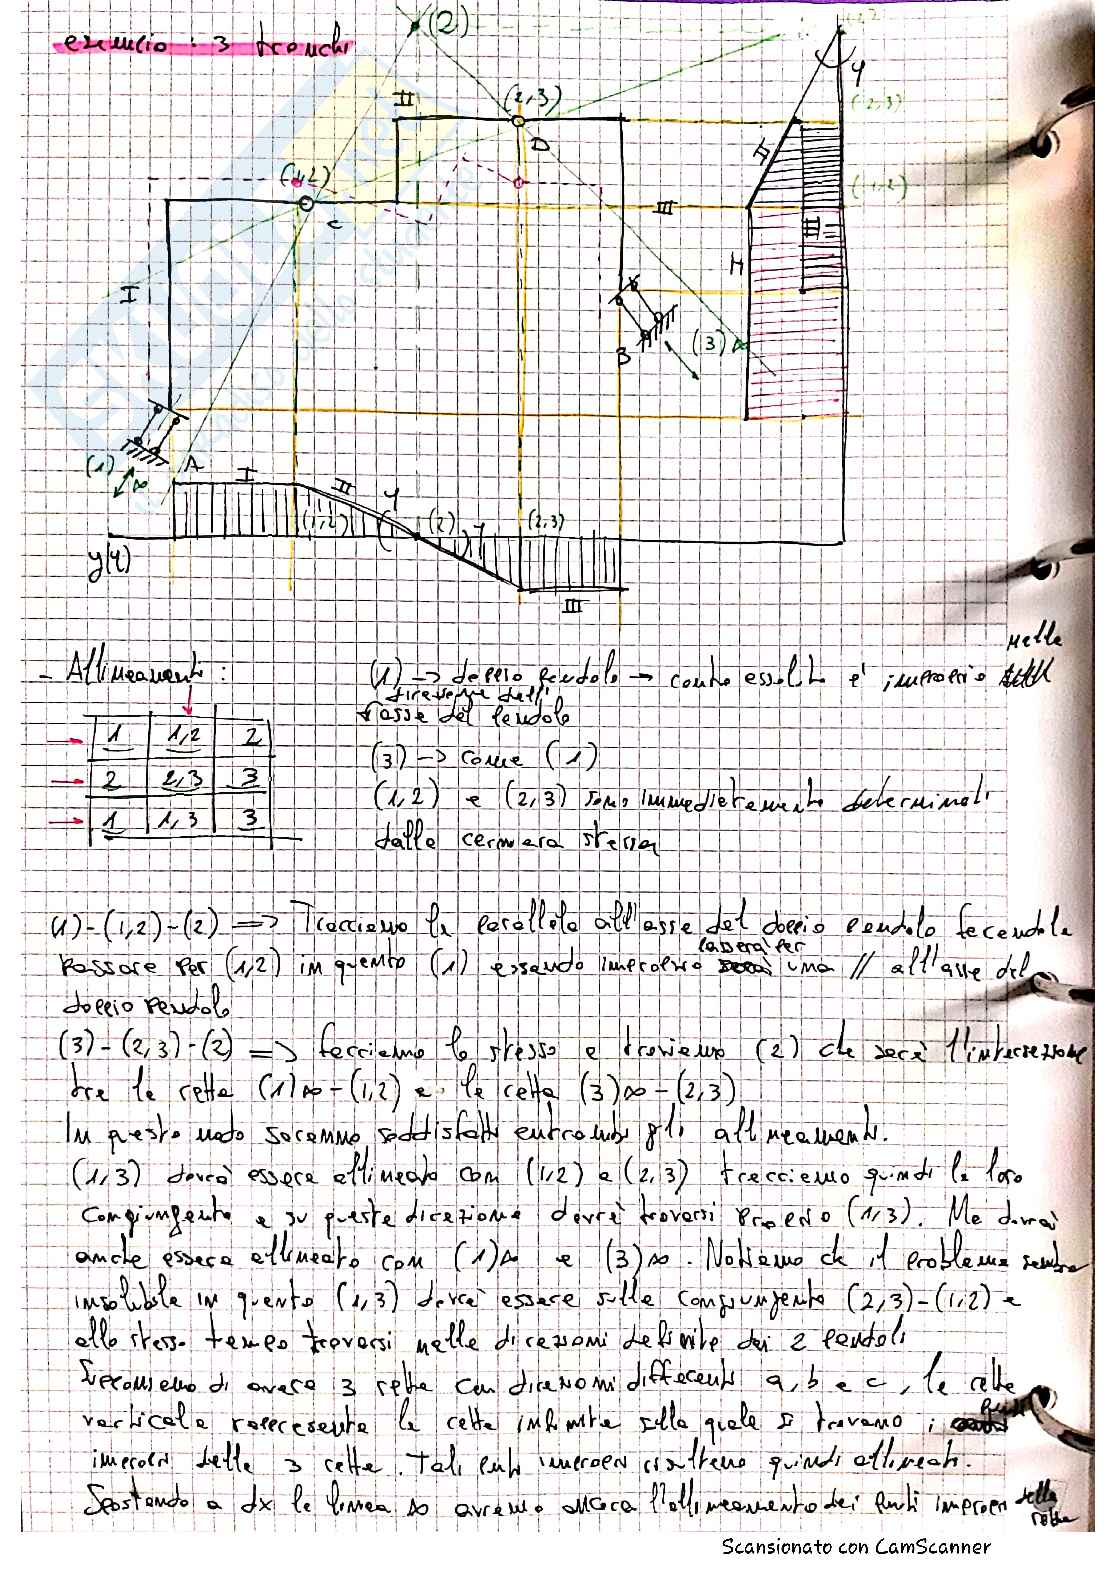 esercizio : 3 tronchi
(2)
(1,2)
φ
II
(2,3)
(2,3)
D
II
(1,2)
(1,2)
C
III
III
I
H
B
(3)∞
(1)
∞
A
I
II
φ
(1,2)
(2)
(2,3)
y(φ)
III
- Allineamenti :
1 1,2 2
2 2,3 3
1 1,3 3
(1) -> doppio pendolo -> centro assoluto è improprio nella
direzione dell'
asse del pendolo
(3) -> come (1)
(1,2) e (2,3) sono immediatamente determinati
dalla cerniera stessa
(1)-(1,2)-(2) => Tracciamo la parallela all'asse del doppio pendolo facendola
passare per (1,2) in quanto (1) essendo improprio passerà per una // all'asse del
doppio pendolo
(3)-(2,3)-(2) => facciamo lo stesso e troviamo (2) che sarà l'intersezione
tra la retta (1)∞-(1,2) e la retta (3)∞-(2,3)
In questo modo saranno soddisfatti entrambi gli allineamenti.
(1,3) dovrà essere allineato con (1,2) e (2,3) tracciamo quindi la loro
congiungente e su queste direzione dovrà trovarsi proprio (1,3). Ma dovrà
anche essere allineato con (1)∞ e (3)∞. Notiamo che il problema sembra
insolubile in quanto (1,3) dovrà essere sulla congiungente (2,3)-(1,2) e
allo stesso tempo trovarsi nelle direzioni definite dai 2 pendoli
Supponiamo di avere 3 rette con direzioni differenti a, b e c, la retta
verticale rappresenta la retta infinita sulla quale si trovano i punti
impropri delle 3 rette. Tali punti impropri risultano quindi allineati.
Spostando a dx la linea ∞ avremo ancora l'allineamento dei punti impropri delle
rette
Scansionato con CamScanner